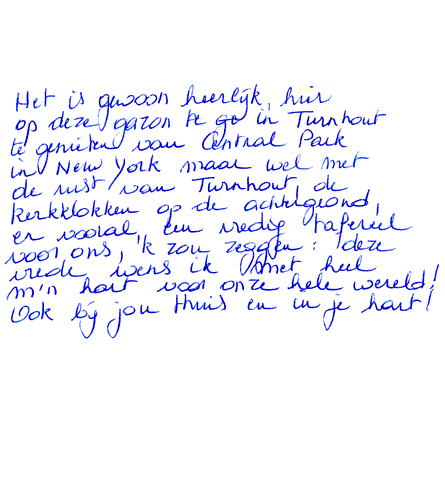 Het is gewoon heerlijk, hier
op deze gazon te go in Turnhout
te genieten van Central Park
in New York maar wel met
de rust van Turnhout, de
kerkklokken op de achtergrond,
en vooral, een vredig tafereel
voor ons, ik zou zeggen: deze
vrede wens ik met heel
m'n hart voor onze hele wereld!
Ook bij jou thuis en in je hart!